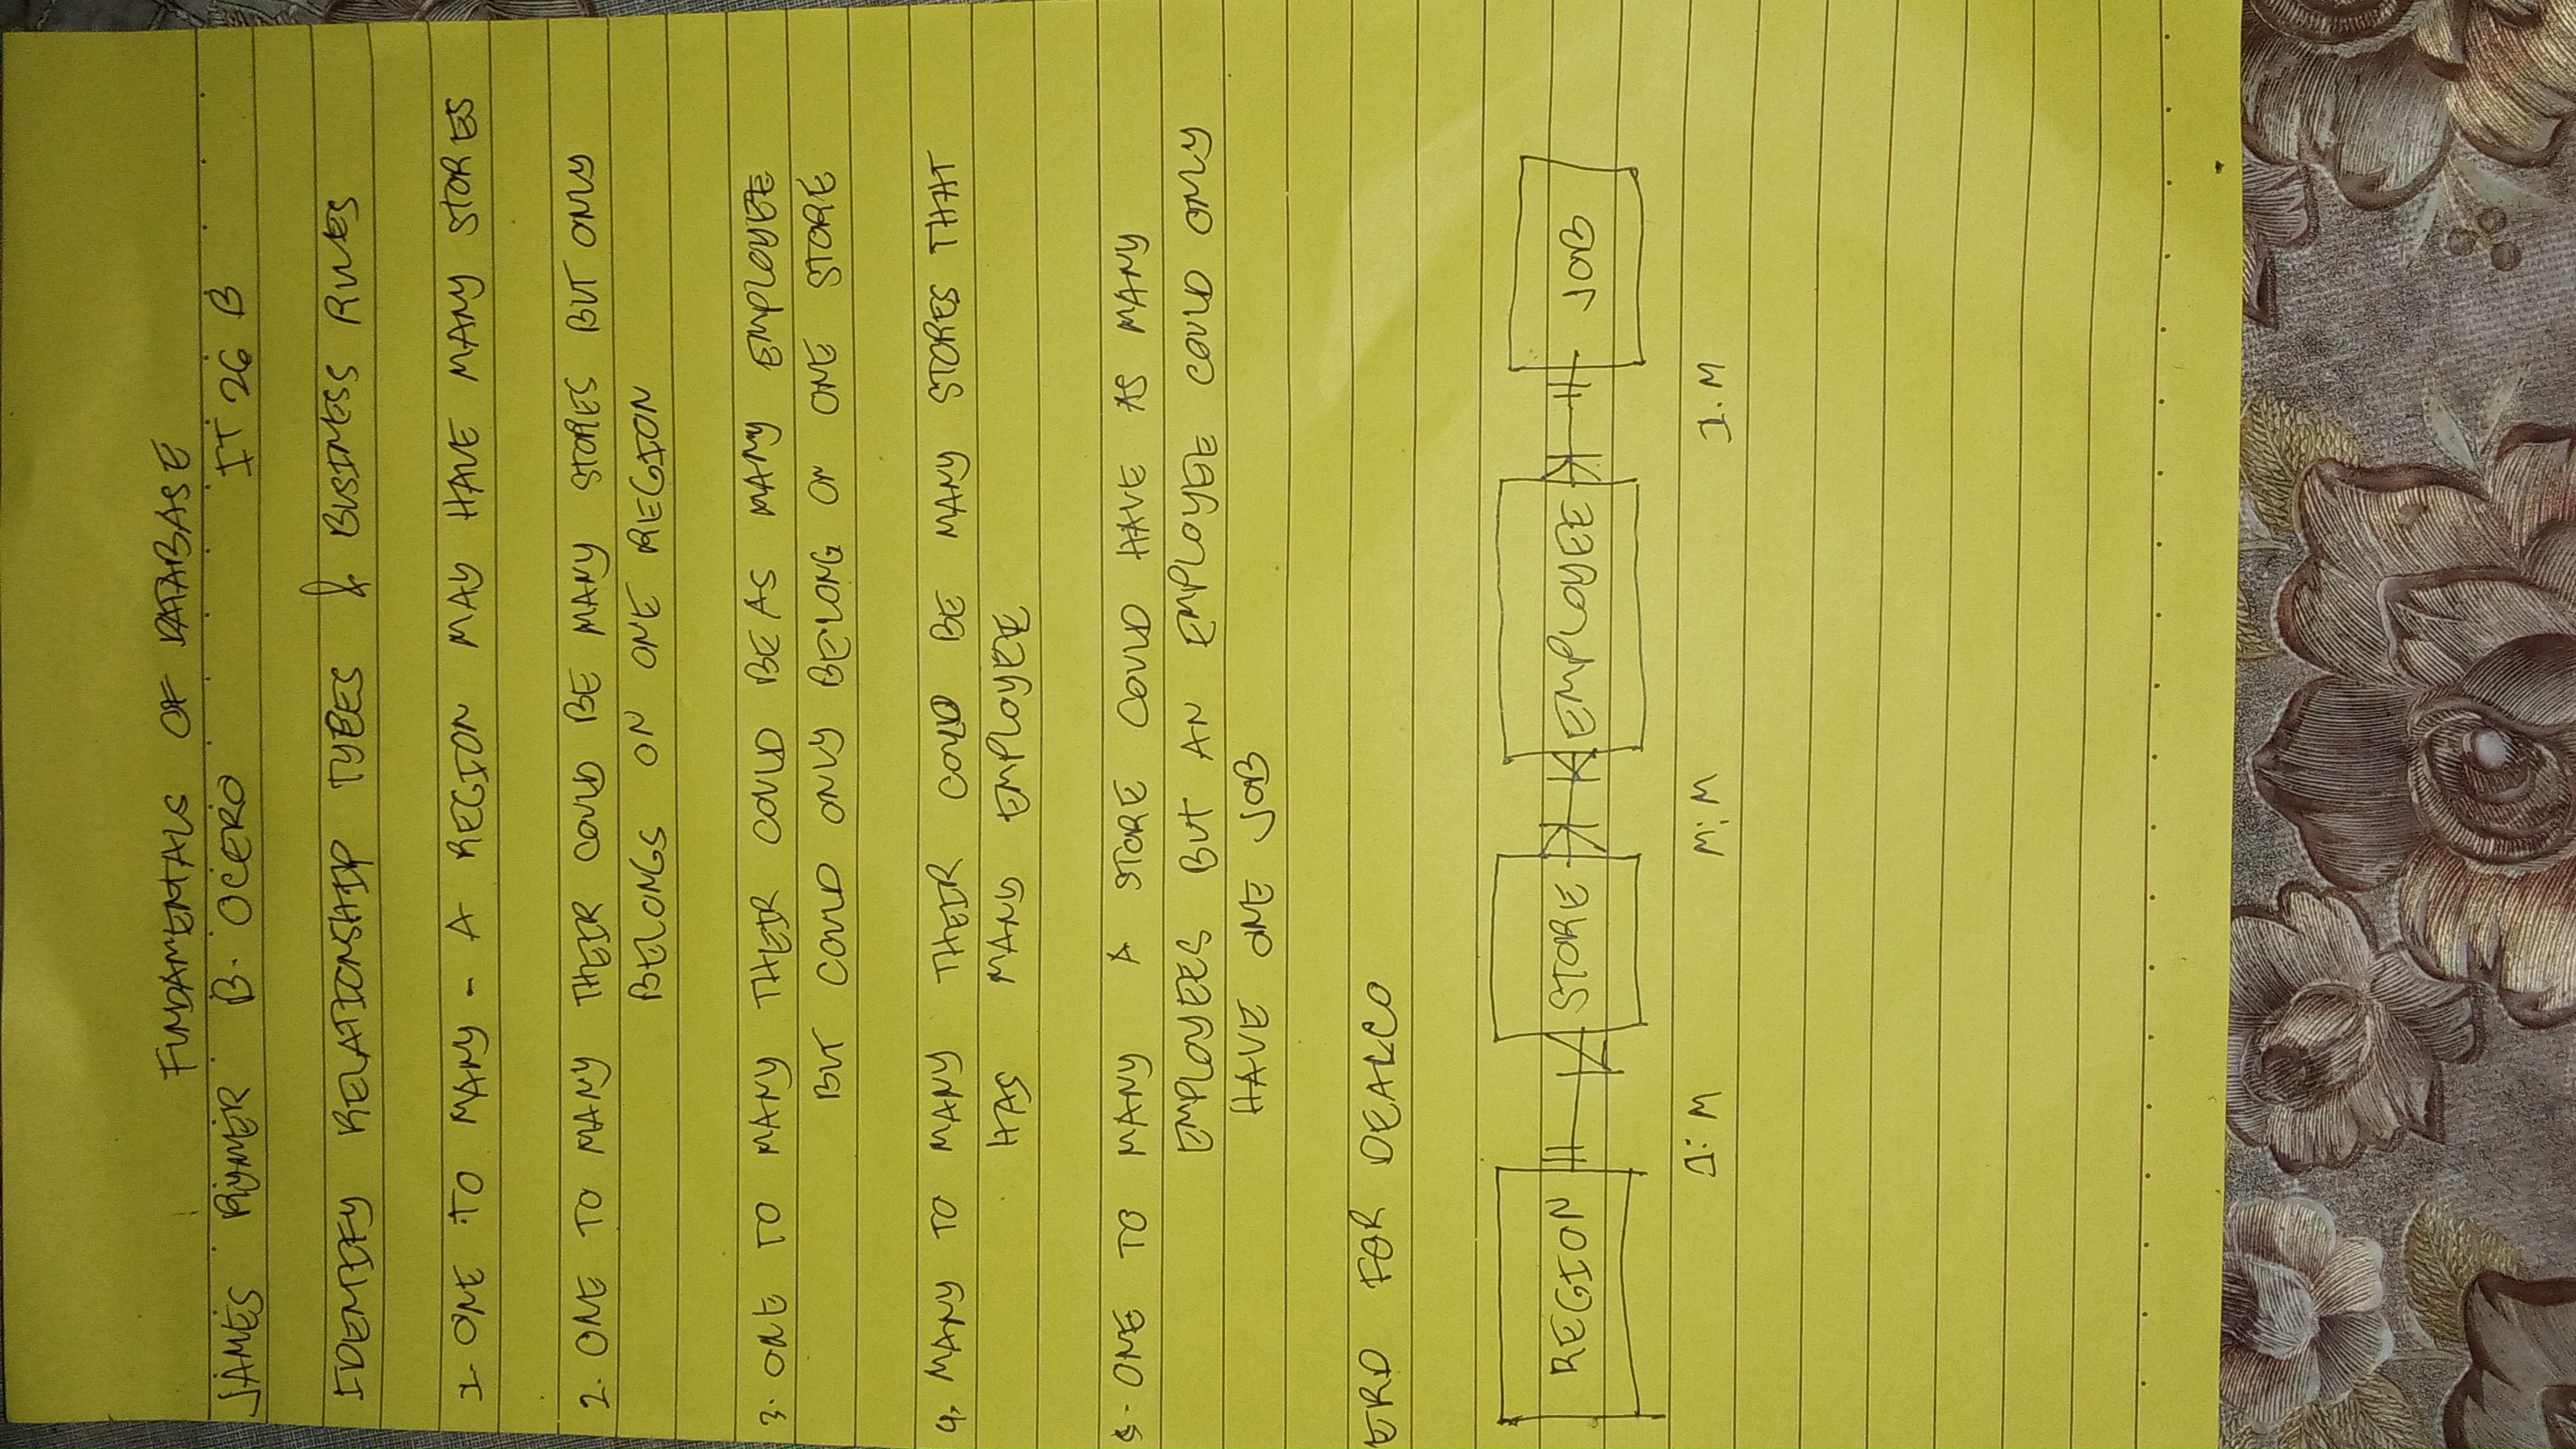 FUNDAMENTALS OF DATABASE
JAMES RYMER B. OCERO IT 26 B
IDENTIFY RELATIONSHIP TYPES & BUSINESS RULES
1. ONE TO MANY - A REGION MAY HAVE MANY STORES
2. ONE TO MANY THEIR COULD BE MANY STORES BUT ONLY
BELONGS ON ONE REGION
3. ONE TO MANY THEIR COULD BE AS MANY EMPLOYEE
BUT COULD ONLY BELONG ON ONE STORE
4. MANY TO MANY THEIR COULD BE MANY STORES THAT
HAS MANY EMPLOYEE
5. ONE TO MANY A STORE COULD HAVE AS MANY
EMPLOYEES BUT AN EMPLOYEE COULD ONLY
HAVE ONE JOB
ERD FOR DEALCO
REGION STORE EMPLOYEE JOB
1:M M:M 1.M